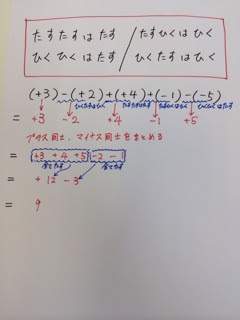 たすたすはたす / たすひくはひく
ひくひくはたす / ひくたすはひく
(+3)-(+2)+(+4)+(-1)-(-5)
ひくたすはひく たすたすはたす たすひくはひく ひくひくはたす
= +3 -2 +4 -1 +5
プラス同士、マイナス同士をまとめる
= +3 +4 +5 -2 -1
全てたす 全てたす
= +12 -3
= 9